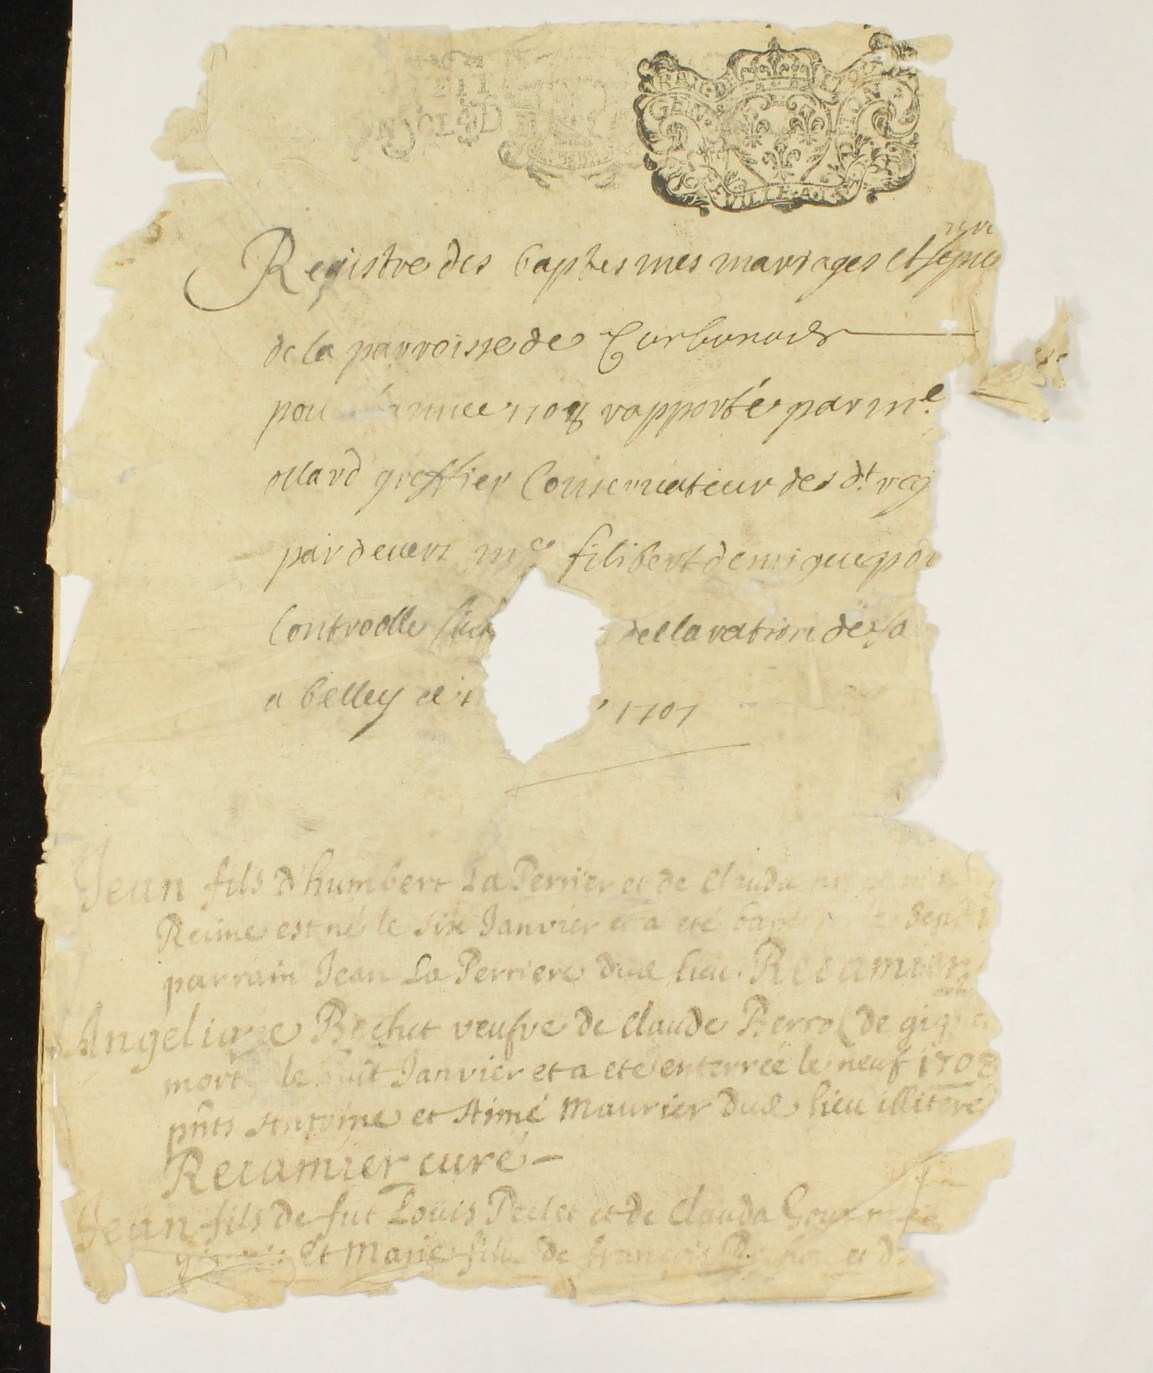 GEN
Registre des baptesmes mariages et sepu
de la parroisse de Corbonod
pou année 1708 rapporté par me
ollard greffier Conservateur des dt reg
pardevers me filibert demigue po
Controolle declaration de
a belley ce 1707
Jean fils d'humbert La Perrier et de Clauda
Reime est né le six Janvier et a eté bapt
parrain Jean La Perriere dud lieu. Recamier
Angelique Bechet veufve de Claude Perrol de
mort le huit Janvier et a eté enterrée le neuf 1708
pnts Antoine et Aimé Maurier dud lieu illiteré
Recamier curé
Jean fils de fut Louis Peclet et de Clauda
et Marie fille de françois et d